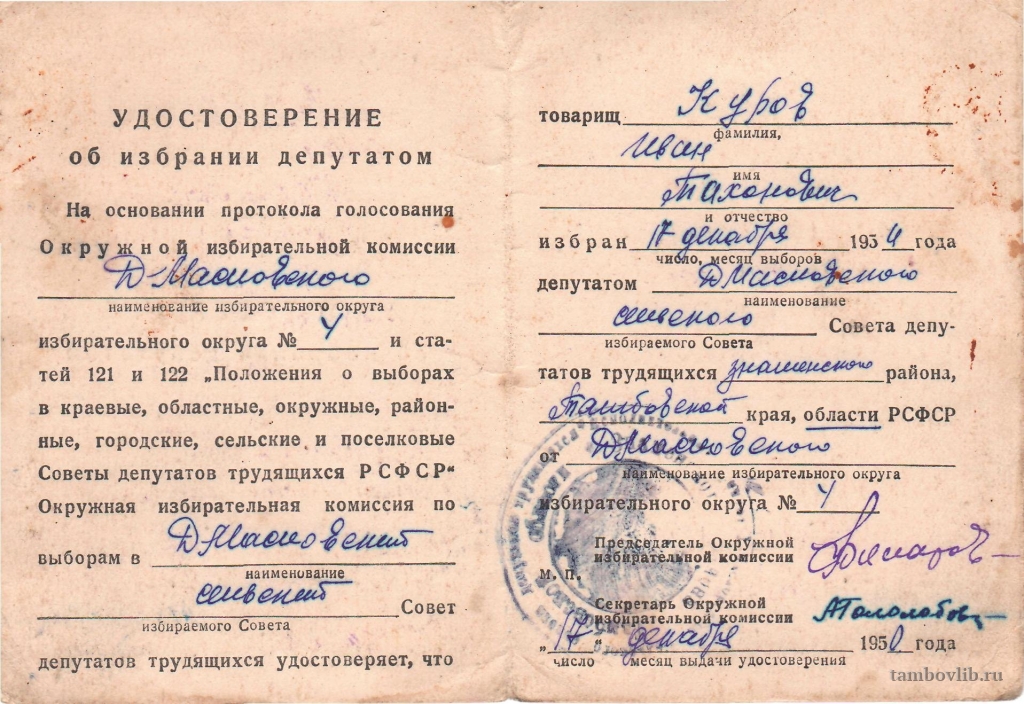 УДОСТОВЕРЕНИЕ
об избрании депутатом
На основании протокола голосования
Окружной избирательной комиссии
Д Масловского
наименование избирательного округа
избирательного округа № 4 и ста-
тей 121 и 122 „Положения о выборах
в краевые, областные, окружные, район-
ные, городские, сельские и поселковые
Советы депутатов трудящихся РСФСР"
Окружная избирательная комиссия по
выборам в Д Масловский
наименование
сельский Совет
избираемого Совета
депутатов трудящихся удостоверяет, что
товарищ Куров
фамилия,
Иван
имя
и отчество
избран 17 декабря 195 года
число, месяц выборов
депутатом Д Масловского
наименование
сельского Совета депу-
избираемого Совета
татов трудящихся знаменского района,
Тамбовской края, области РСФСР
от Д Масловского
наименование избирательного округа
избирательного округа № 4
Председатель Окружной
избирательной комиссии
М. П.
Секретарь Окружной
избирательной комиссии
„17" декабря 1950 года
число месяц выдачи удостоверения
tambovlib.ru